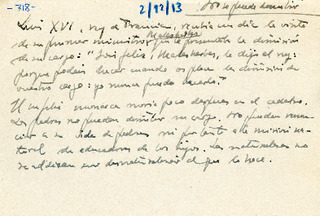 -718-
2/12/13
No se puede dimitir
Luis XVI, rey de Francia, recibió un día la visita
de su primer ministro Malesherbes que le presentaba la dimisión
de su cargo: "Sois feliz, Malesherbes, le dijo el rey:
porque podéis hacer cuando os place la dimisión de
vuestro cargo: yo nunca puedo hacerla."
El infeliz monarca murió poco después en el cadalso.
Los padres no pueden dimitir su cargo. No pueden renun-
ciar a su vida de padres ni por tanto a la misión na-
tural de educadores de los hijos. La naturaleza no
se